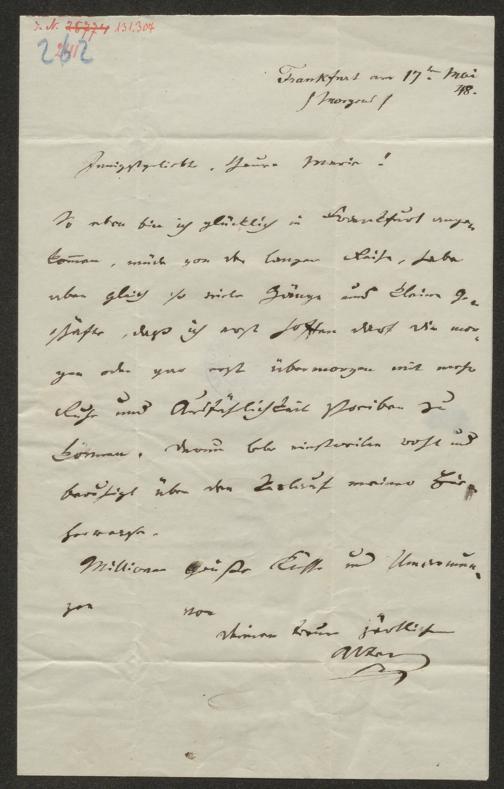 J. N. 26774 131.304
262
Frankfurt am 17ten Mai
/ Morgens / 48.
Innigstgeliebte, theure Marie!
So eben bin ich glücklich in Frankfurt ange-
kommen, müde von der langen Reise, habe
aber gleich so viele Gänge und kleine Ge-
schäfte, daß ich erst hoffen darf dir mor-
gen oder gar erst übermorgen mit mehr
Ruhe und Ausführlichkeit schreiben zu
können. Darum lebe einstweilen wohl und
beruhigt über den Verlauf meiner Hie-
herreise.
Millionen Grüße Küsse und Umarmun-
gen von
deinem treuen zärtlichen